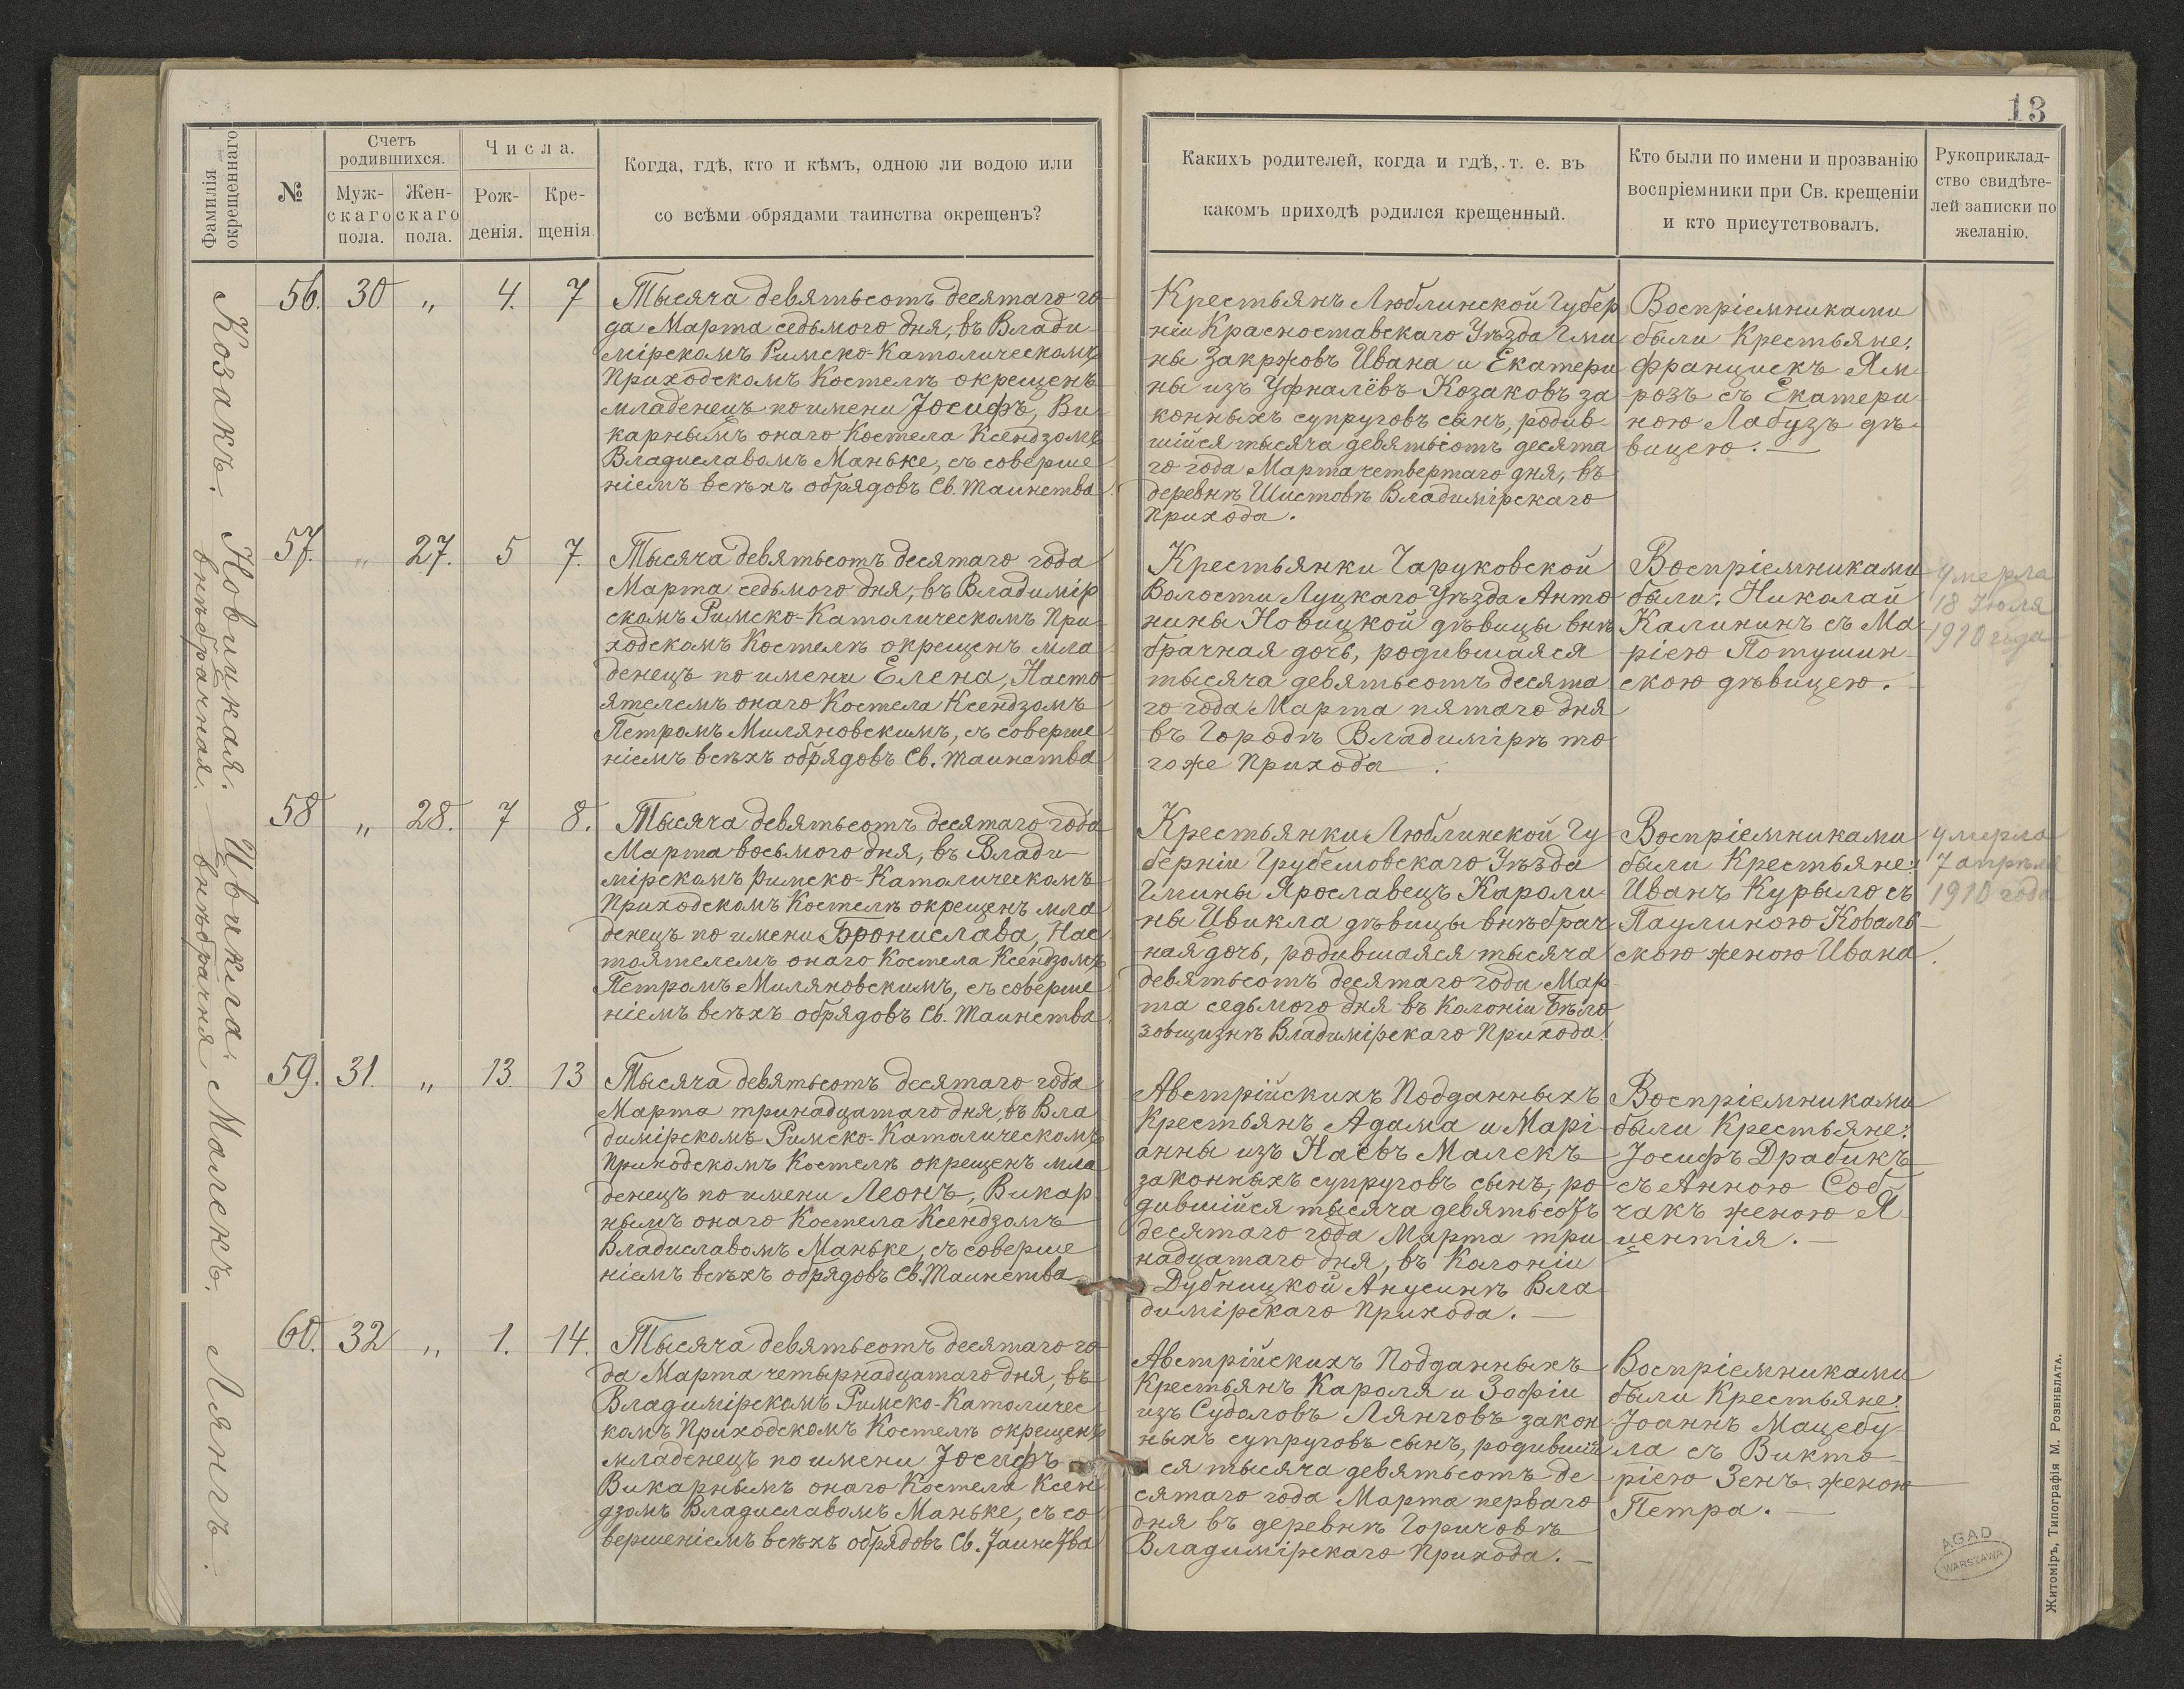 13
Фамилія окрещеннаго
№
Счетъ родившихся.
Мужскаго пола.
Женскаго пола.
Числа.
Рожденія.
Крещенія.
Когда, гдѣ, кто и кѣмъ, одною ли водою или
со всѣми обрядами таинства окрещенъ?
Какихъ родителей, когда и гдѣ, т. е. въ
какомъ приходѣ родился крещенный.
Кто были по имени и прозванію
воспріемники при Св. крещеніи
и кто присутствовалъ.
Рукоприклад-
ство свидѣте-
лей записки по
желанію.
Козакъ.
56. 30 „ 4. 7
Тысяча девятьсотъ десятаго го
да Марта седьмого дня, въ Влади
мірскомъ Римско-Католическомъ
Приходскомъ Костелѣ окрещенъ
младенецъ по имени Іосифъ, Ви
карнымъ онаго Костела Ксендзомъ
Владиславомъ Маньке, съ соверше
ніемъ всѣхъ обрядовъ Св. Таинства
Крестьянъ Люблинской Губер
ніи Красноставскаго Уѣзда Гми
ны Закржовъ Ивана и Екатери
ны изъ Уфналёвъ Козаковъ за
конныхъ супруговъ сынъ, родив
шійся тысяча девятьсотъ десята
го года Марта четвертаго дня, въ
деревнѣ Шистовѣ Владимірскаго
Прихода.
Воспріемниками
были Крестьяне:
Францискъ Ям
розъ съ Екатери
ною Лабузъ дѣ
вицею.
Новицкая.
внѣбрачная.
57. „ 27. 5 7.
Тысяча девятьсотъ десятаго года
Марта седьмого дня, въ Владимір
скомъ Римско-Католическомъ При
ходскомъ Костелѣ окрещенъ мла
денецъ по имени Елена, Насто
ятелемъ онаго Костела Ксендзомъ
Петромъ Миляновскимъ, съ соверше
ніемъ всѣхъ обрядовъ Св. Таинства
Крестьянки Чаруковской
Волости Луцкаго Уѣзда Анто
нины Новицкой дѣвицы внѣ
брачная дочь, родившаяся
тысяча девятьсотъ десята
го года Марта пятаго дня
въ Городѣ Владимірѣ то
го же Прихода.
Воспріемниками
были: Николай
Калининъ съ Ма
ріею Потушин
скою дѣвицею.
Умерла
18 Іюля
1910 года
Цвикла.
внѣбрачная
58 „ 28. 7 8.
Тысяча девятьсотъ десятаго года
Марта восьмого дня, въ Влади
мірскомъ Римско-Католическомъ
Приходскомъ Костелѣ окрещенъ мла
денецъ по имени Бронислава, Нас
тоятелемъ онаго Костела Ксендзомъ
Петромъ Миляновскимъ, съ соверше
ніемъ всѣхъ обрядовъ Св. Таинства
Крестьянки Люблинской Гу
берніи Грубешовскаго Уѣзда
Гмины Ярославецъ Кароли
ны Цвикла дѣвицы внѣбрач
ная дочь, родившаяся тысяча
девятьсотъ десятаго года Мар
та седьмого дня въ Колоніи Бѣло
зовщизнѣ Владимірскаго Прихода.
Воспріемниками
были Крестьяне:
Иванъ Курыло съ
Паулиною Коваль
скою женою Ивана.
Умерла
7 апрѣля
1910 года
Малекъ.
59. 31. „ 13 13
Тысяча девятьсотъ десятаго года
Марта тринадцатаго дня, въ Вла
димірскомъ Римско-Католическомъ
Приходскомъ Костелѣ окрещенъ мла
денецъ по имени Леонъ, Викар
нымъ онаго Костела Ксендзомъ
Владиславомъ Маньке, съ соверше
ніемъ всѣхъ обрядовъ Св. Таинства
Австрійскихъ Подданныхъ
Крестьянъ Адама и Марі
анны изъ Наёвъ Малекъ
законныхъ супруговъ сынъ, ро
дившійся тысяча девятьсотъ
десятаго года Марта три
надцатаго дня, въ Колоніи
Дубницкой Анусинѣ Вла
димірскаго Прихода.
Воспріемниками
были Крестьяне:
Іосифъ Драбикъ
съ Анною Соб
чакъ женою Я
центія.
Лянгъ.
60. 32 „ 1. 14.
Тысяча девятьсотъ десятаго го
да Марта четырнадцатаго дня, въ
Владимірскомъ Римско-Католичес
комъ Приходскомъ Костелѣ окрещенъ
младенецъ по имени Іосифъ
Викарнымъ онаго Костела Ксен
дзомъ Владиславомъ Маньке, съ со
вершеніемъ всѣхъ обрядовъ Св. Таинства
Австрійскихъ Подданныхъ
Крестьянъ Кароля и Зофіи
изъ Судоловъ Лянговъ закон
ныхъ супруговъ сынъ, родивший
ся тысяча девятьсотъ де
сятаго года Марта перваго
дня въ деревнѣ Горичовѣ
Владимірскаго Прихода.
Воспріемниками
были Крестьяне:
Іоаннъ Мацебу
ла съ Викто
ріею Зенъ женою
Петра.
AGAD
WARSZAWA
Житоміръ, Типографія М. Розенблата.